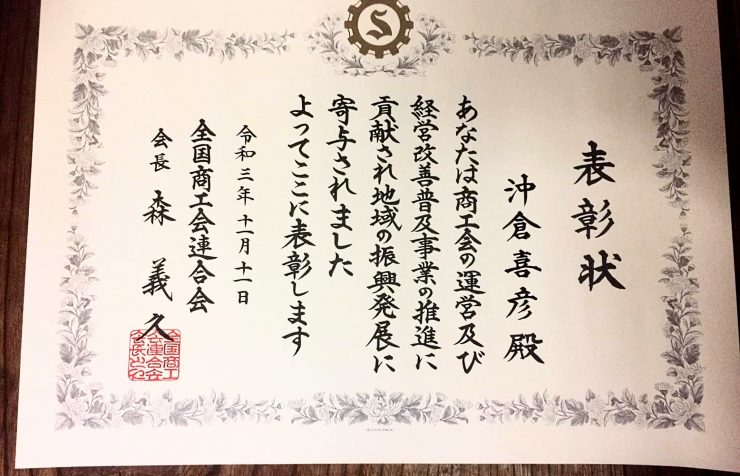 表彰状
沖倉喜彦殿
あなたは商工会の運営及び
経営改善普及事業の推進に
貢献され地域の振興発展に
寄与されました
よってここに表彰します
令和三年十一月十一日
全国商工会連合会
会長 森義久